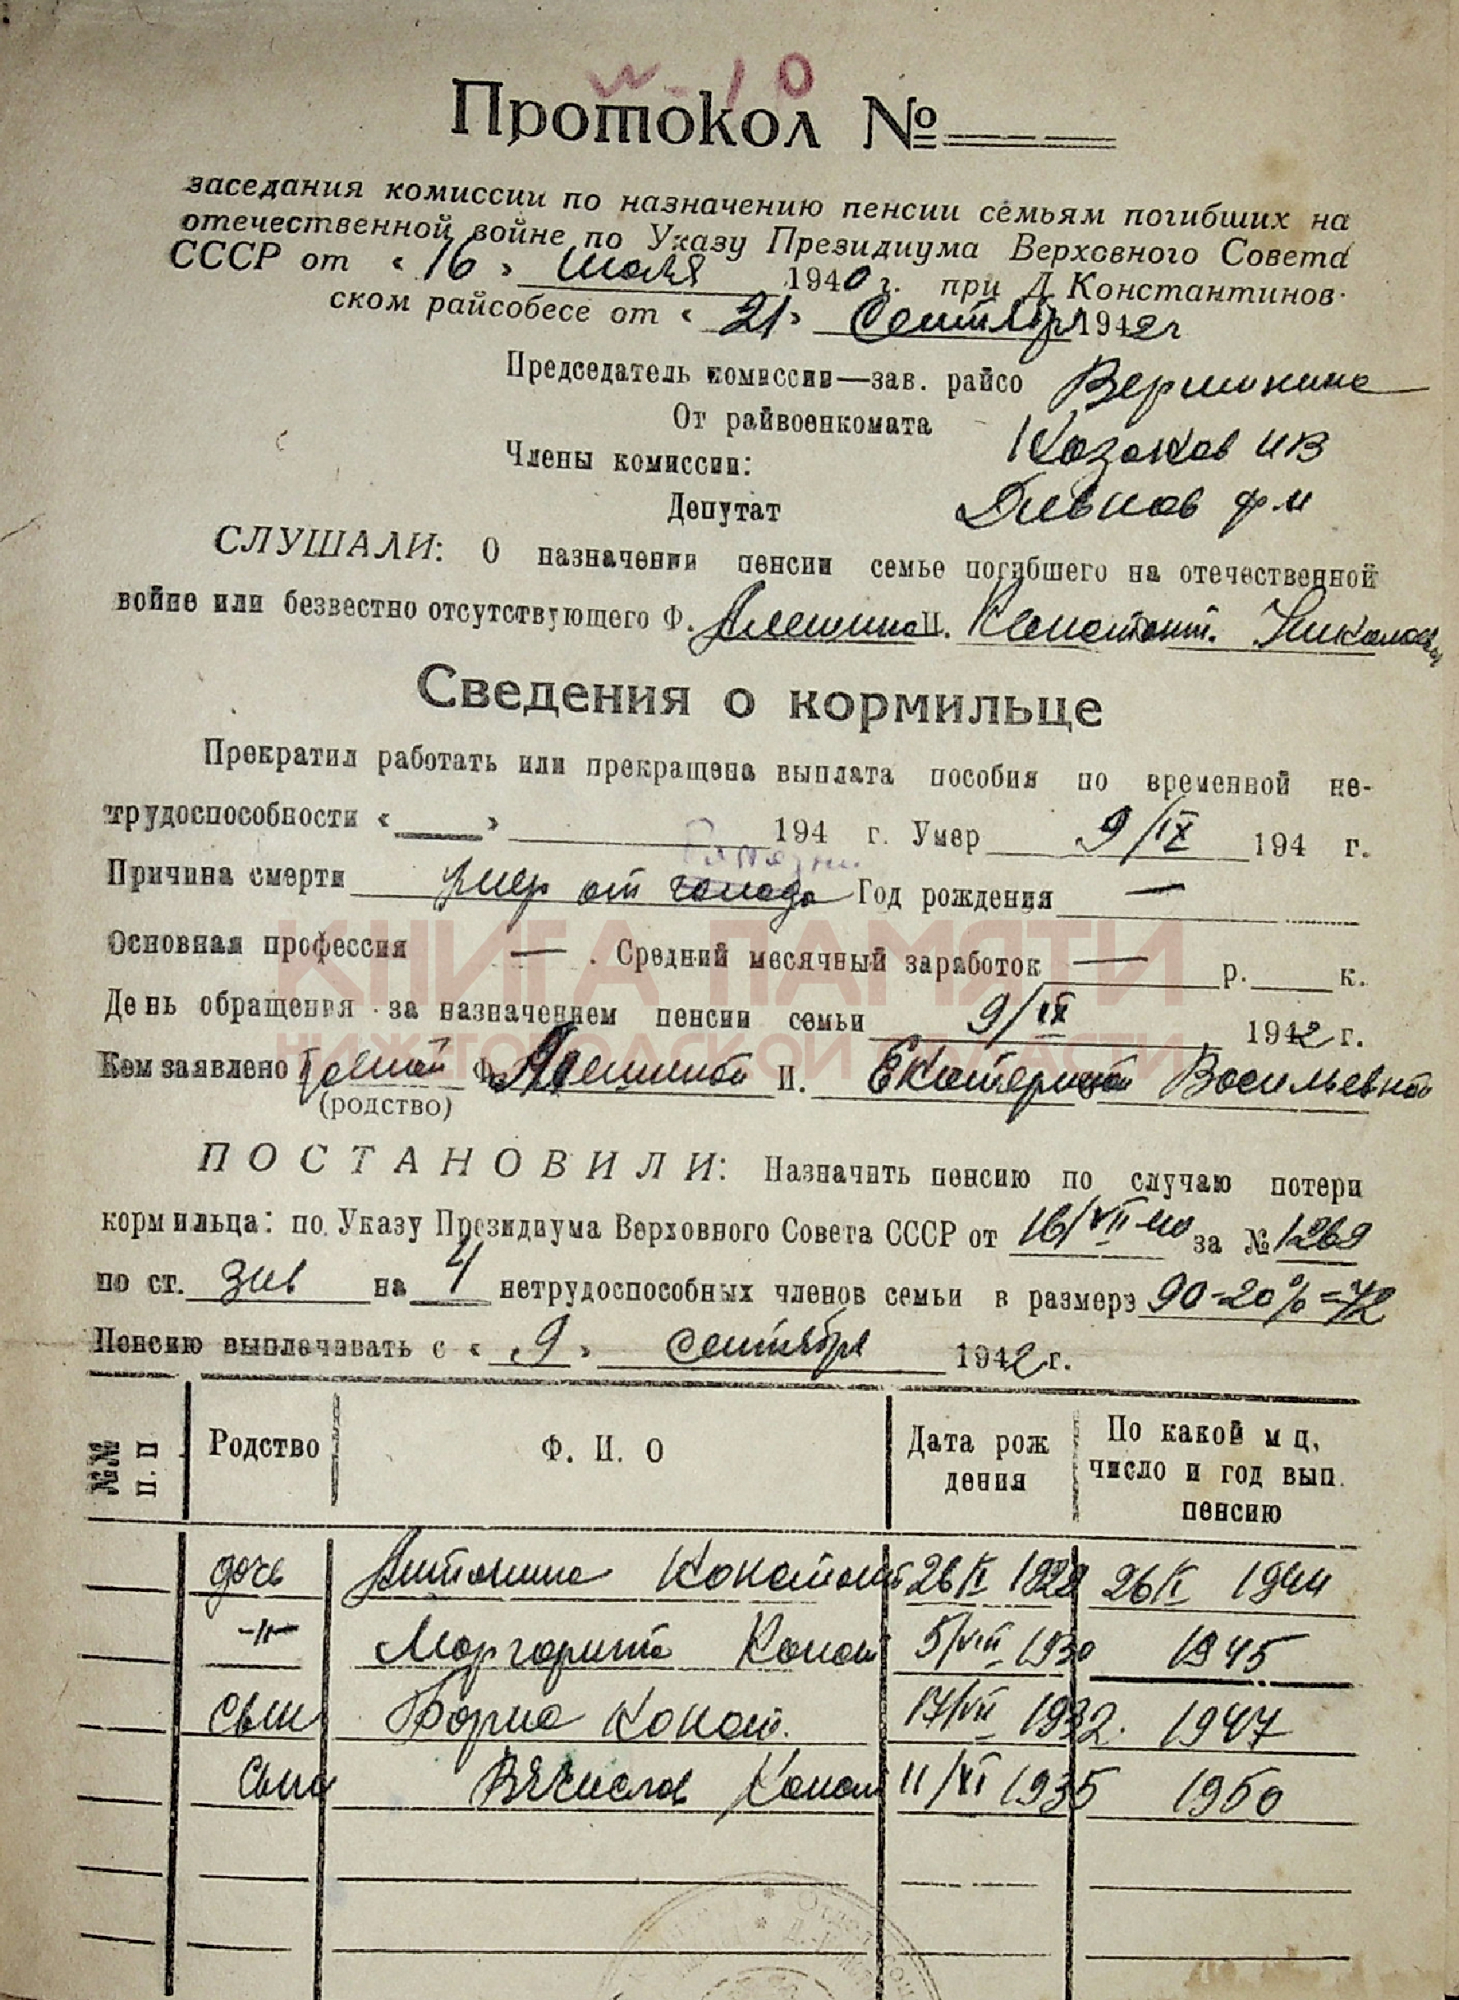 № 10
Протокол №
заседания комиссии по назначению пенсии семьям погибших на
отечественной войне по Указу Президиума Верховного Совета
СССР от « 16 » июля 1940 г. при Д Константинов-
ском райсобесе от « 21 » Сентября 1942 г
Председатель комиссии—зав. райсо Вершинина
От райвоенкомата Козаков И В
Члены комиссии:
Депутат Ф М
СЛУШАЛИ: О назначении пенсии семье погибшего на отечественной
войне или безвестно отсутствующего Ф. Алешина И. Констант. Николаев
Сведения о кормильце
Прекратил работать или прекращена выплата пособия по временной не-
трудоспособности « » 194 г. Умер 9/IX 194 г.
Причина смерти умер от Год рождения —
Основная профессия — . Средний месячный заработок — р. к.
День обращения за назначением пенсии семьи 9/IX 1942 г.
Кем заявлено женой Ф. Алешиной И. Екатериной Васильевной
(родство)
ПОСТАНОВИЛИ: Назначить пенсию по случаю потери
кормильца: по Указу Президиума Верховного Совета СССР от 16/VII 40 за № 1269
по ст. 3 на 4 нетрудоспособных членов семьи в размере 90-20%=72
Пенсию выплачивать с « 9 » сентября 1942 г.
№№ п. п Родство Ф. И. О Дата рож По какой м ц,
дения число и год вып.
пенсию
дочь Антонина Констант 1944
-"- Маргарита Конст 5/VIII 1930 1945
сын Борис Конст. 17/VII 1932. 1947
сын Вячеслав Конст 11/XI 1935 1950
КНИГА ПАМЯТИ
НИЖЕГОРОДСКОЙ ОБЛАСТИ